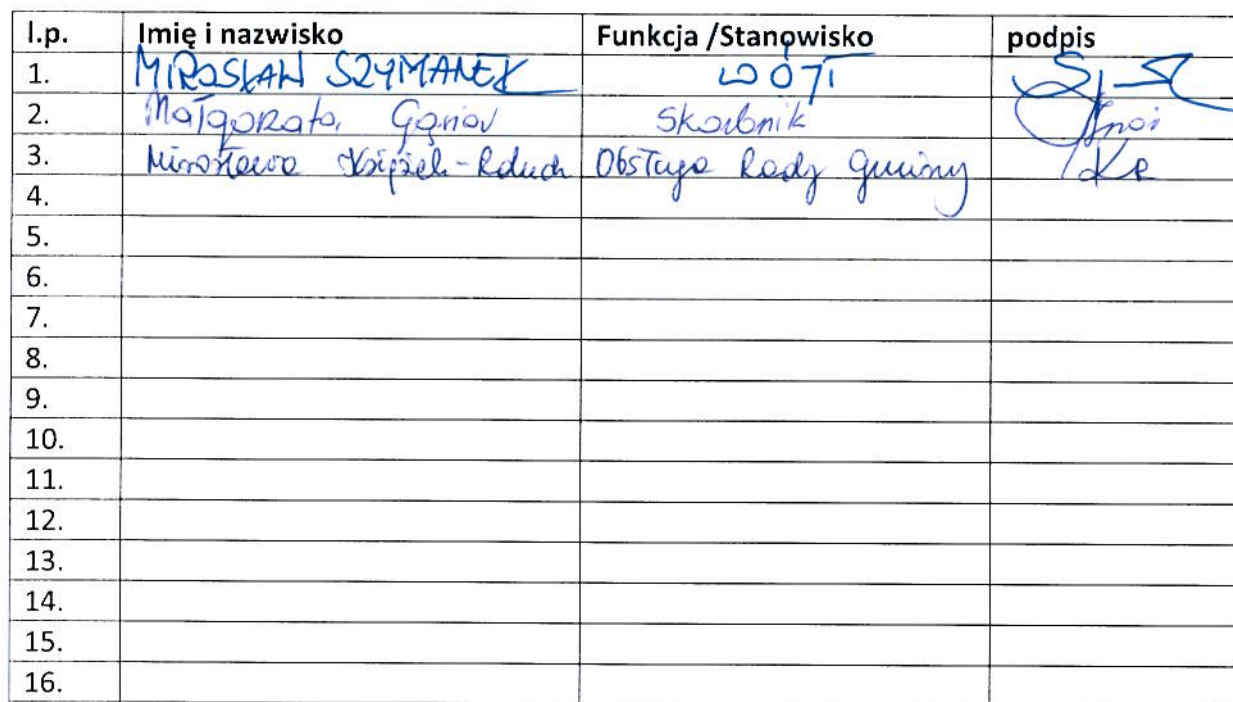 l.p. Imię i nazwisko Funkcja /Stanowisko podpis
1. MIROSŁAW SZYMANEK WÓJT
2. Małgorzata Skarbnik
3. Mirosława Księżek-Rduch Obsługa Rady Gminy
4.
5.
6.
7.
8.
9.
10.
11.
12.
13.
14.
15.
16.